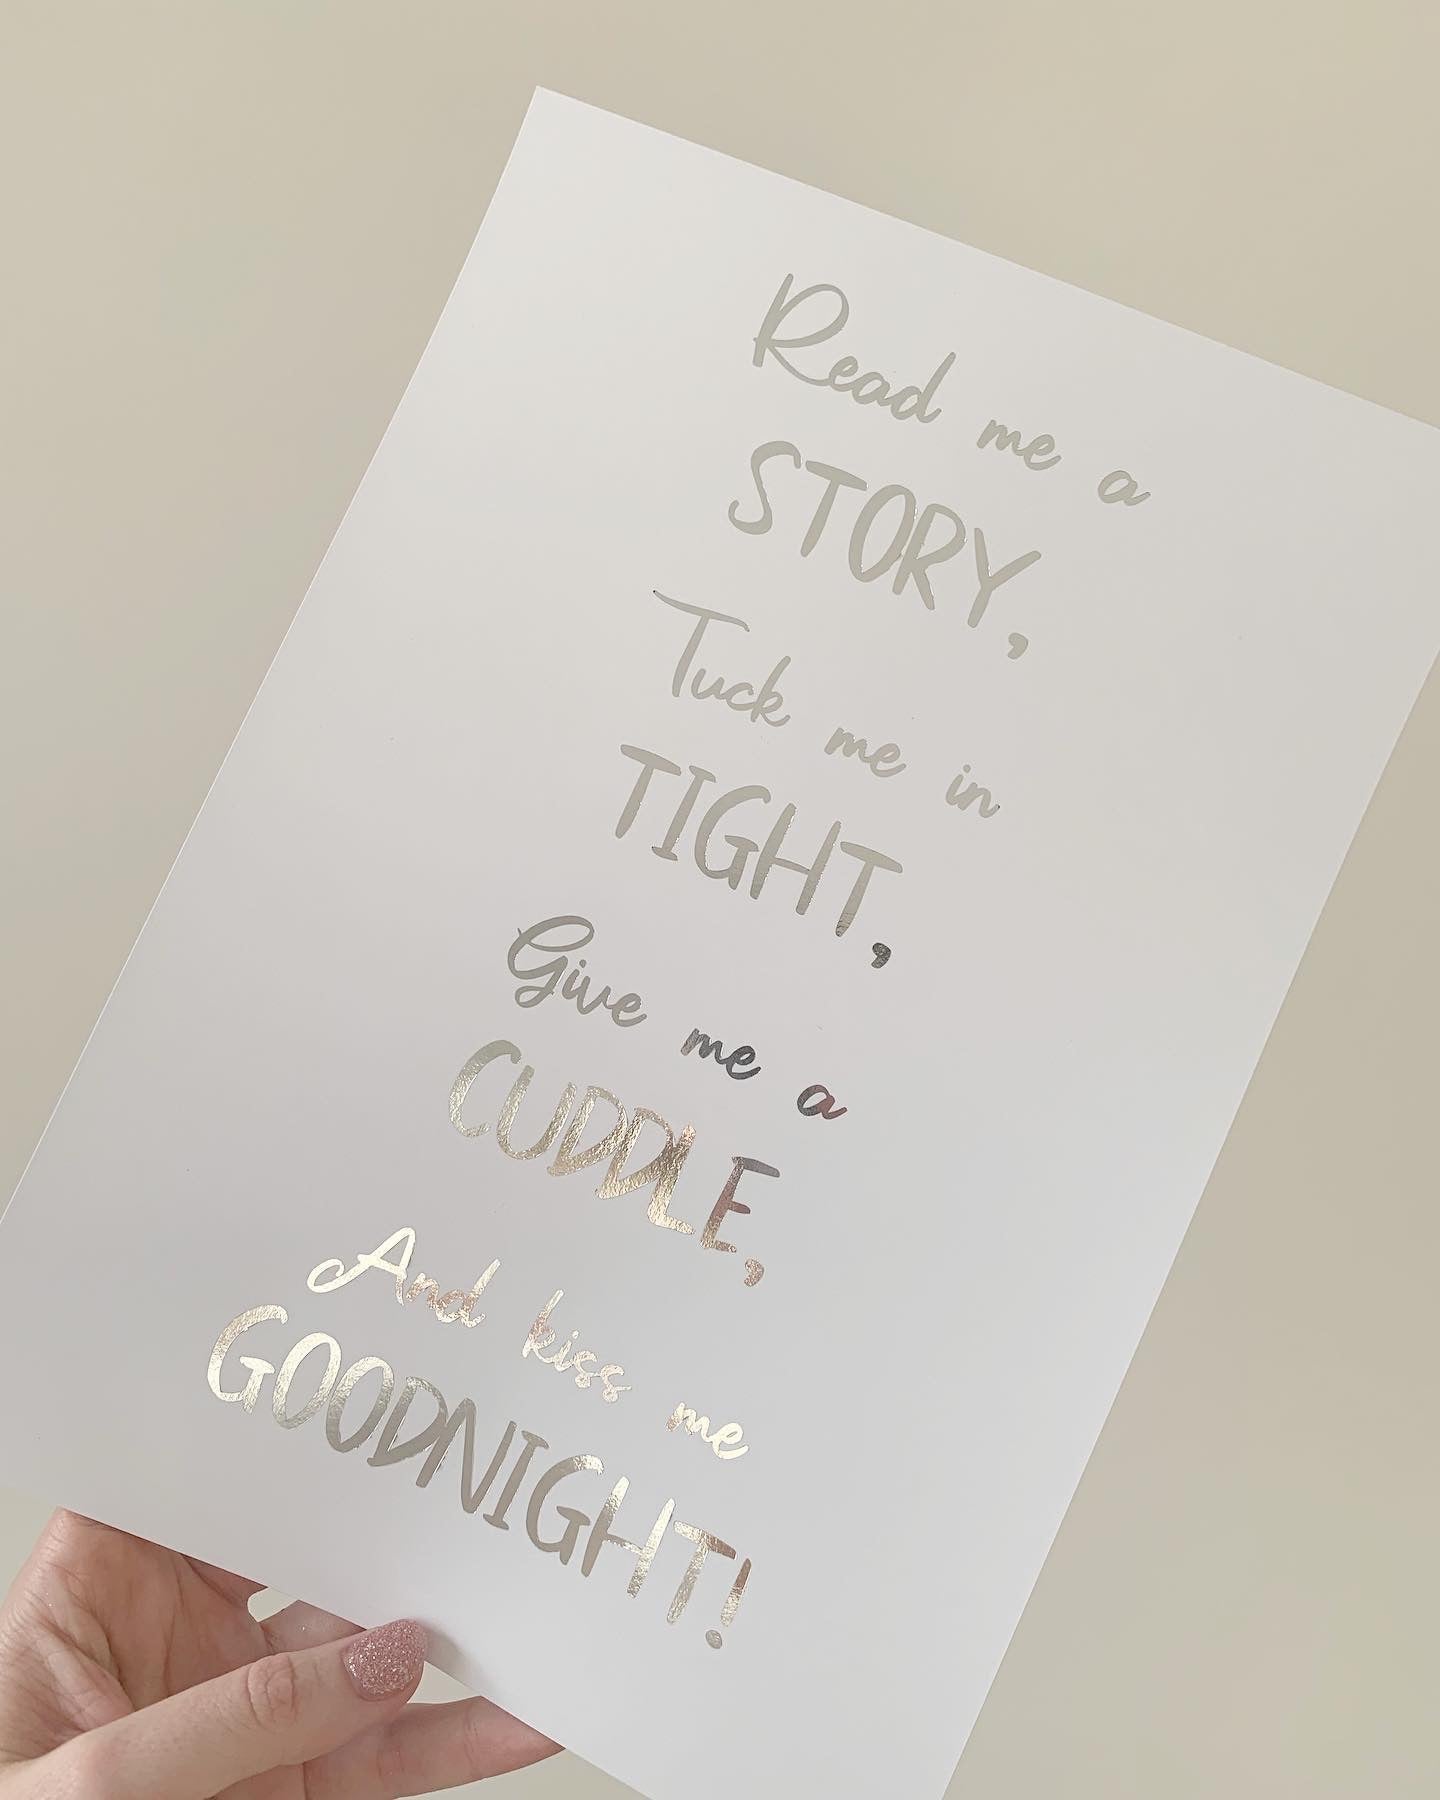 Read me a
STORY,
Tuck me in
TIGHT,
Give me a
CUDDLE,
And kiss me
GOODNIGHT!